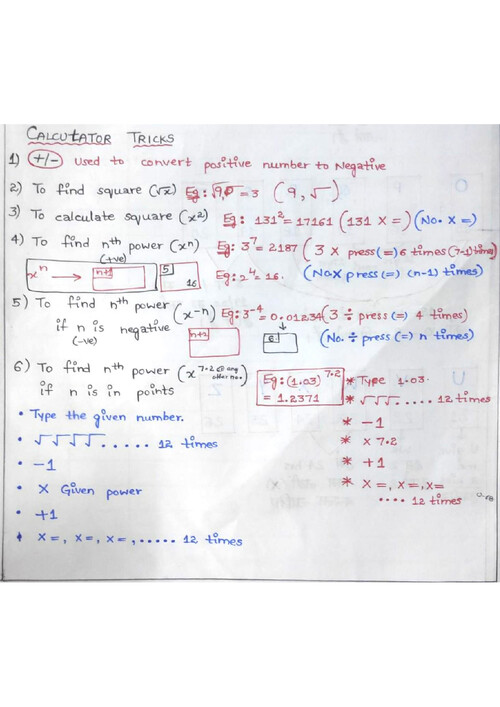 CALCULATOR TRICKS
1) (+/-) Used to convert positive number to Negative
2) To find square (√x) Eg: √9 = 3 (9, √)
3) To calculate square (x²) Eg: 131² = 17161 (131 X =) (No. X =)
4) To find nth power (xⁿ) Eg: 3⁷ = 2187 (3 X press (=) 6 times (7-1) times)
(+ve)
xⁿ → n+1 5 16 Eg: 2⁴ = 16. (No X press (=) (n-1) times)
5) To find nth power (x⁻ⁿ) Eg: 3⁻⁴ = 0.01234 (3 ÷ press (=) 4 times)
if n is negative n+2 6 (No. ÷ press (=) n times)
(-ve)
6) To find nth power (x^7.2 or any other no.)
if n is in points
Eg: (1.03)^7.2
= 1.2371
• Type the given number.
• √√√√ ..... 12 times
• -1
• X Given power
• +1
• X=, X=, X=, ..... 12 times
* Type 1.03.
* √√√ .... 12 times
* -1
* X 7.2
* +1
* X=, X=, X=
.... 12 times